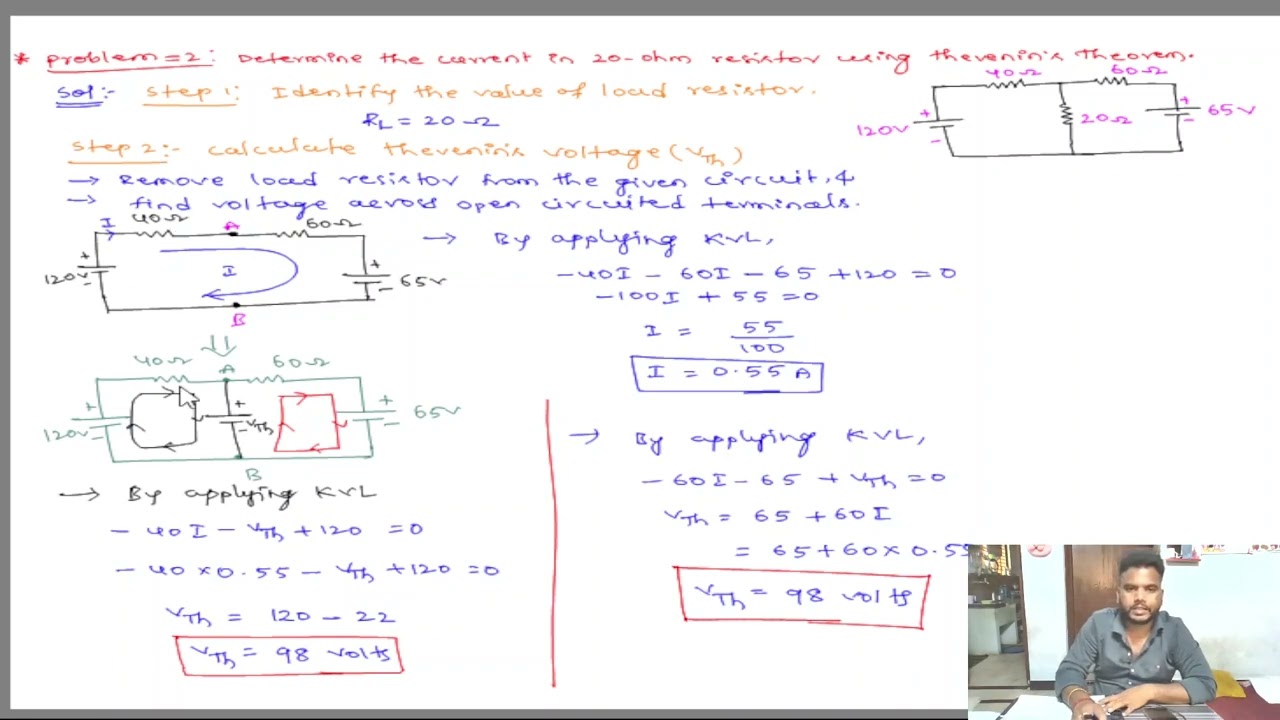 * Problem=2: Determine the current in 20-ohm resistor using thevenin's Theorem.
Sol:- Step 1: Identify the value of load resistor.
RL = 20Ω
Step 2:- Calculate thevenin's voltage (VTh)
→ Remove load resistor from the given circuit, &
→ find voltage across open circuited terminals.
40Ω 60Ω
120V + - 20Ω + - 65V
I 40Ω A 60Ω
120V + - I + - 65V
B
40Ω A 60Ω
120V + - + - VTh + - 65V
B
→ By applying KVL
- 40I - VTh + 120 = 0
- 40 × 0.55 - VTh + 120 = 0
VTh = 120 - 22
VTh = 98 volts
→ By applying KVL,
-40I - 60I - 65 + 120 = 0
-100I + 55 = 0
I = 55
100
I = 0.55 A
→ By applying KVL,
- 60I - 65 + VTh = 0
VTh = 65 + 60I
= 65 + 60 × 0.55
VTh = 98 volts